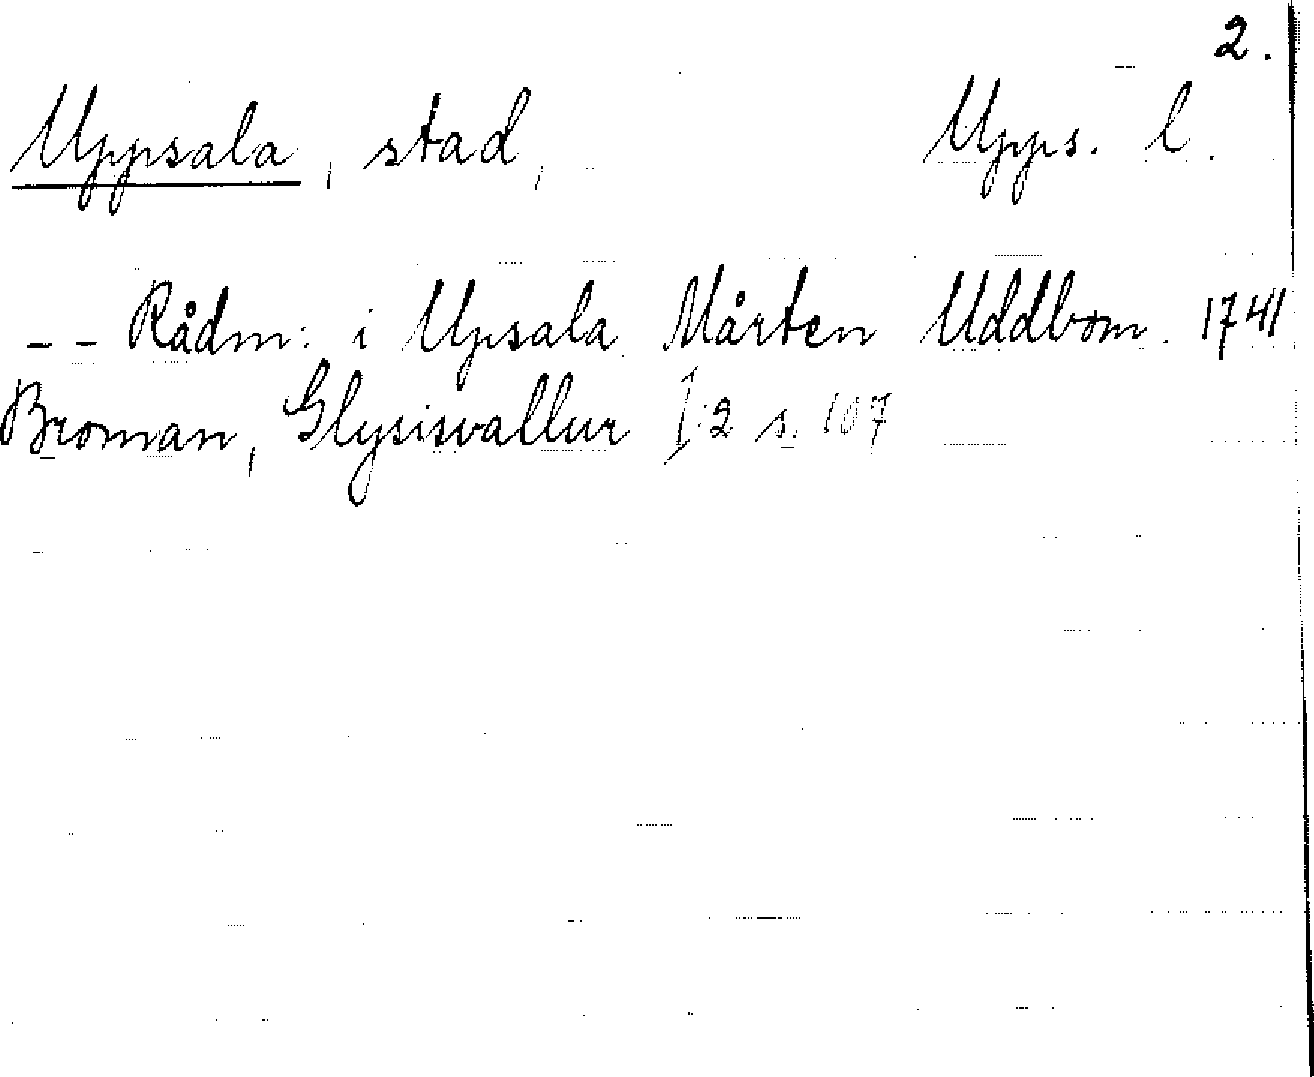 2.
Uppsala, stad, Upps. l.
-- Rådm: i Upsala Mårten Uddbom. 1741
Broman, Glysisvallur I:2 s. 107